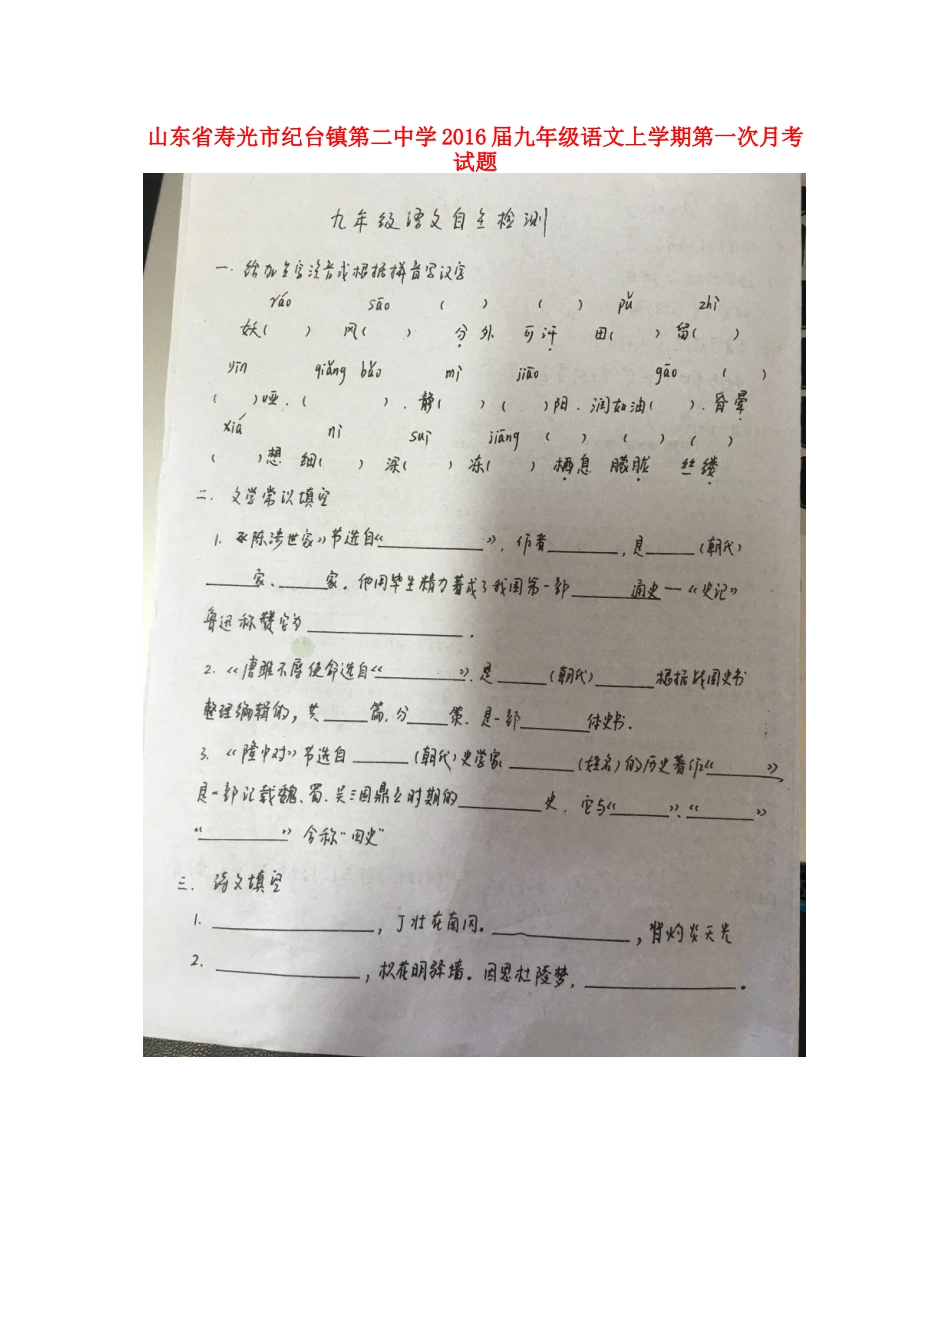 山东省寿光市纪台镇第二中学2016届九年级语文上学期第一次月考
试题
九年级语文自主检测
一. 给加点字注音或根据拼音写汉字
ráo sāo ( ) ( ) pǔ zhì
妖( ) 风( ) 分外 可汗 田( ) 留( )
yīn qiǎng bǎo mì jiāo gāo ( )
( )哑.( ).静( ) ( )阳.润如油( ).昏晕
xiá nì suì jiāng ( ) ( ) ( )
( )想 细( ) 深( ) 冻( ) 栖息 朦胧 丝缕
二. 文学常识填空
1. 《陈涉世家》节选自《__________》,作者_______,是_____(朝代)
_____家、_____家。他用毕生精力著成了我国第一部________通史—《史记》
鲁迅称赞它为______________.
2.《唐雎不辱使命选自《________》.是_____(朝代)_____根据战国史书
整理编辑的,共____篇.分____策.是一部______体史书.
3.《隆中对》节选自_____(朝代)史学家______(姓名)的历史著作《______》
是一部记载魏、蜀、吴三国鼎立时期的________史.它与《______》、《______》
《________》合称"四史"
三. 诗文填空
1. ______________,丁壮在南冈。____________,背灼炎天光
2. ______________,枳花明驿墙。因思杜陵梦,______________。